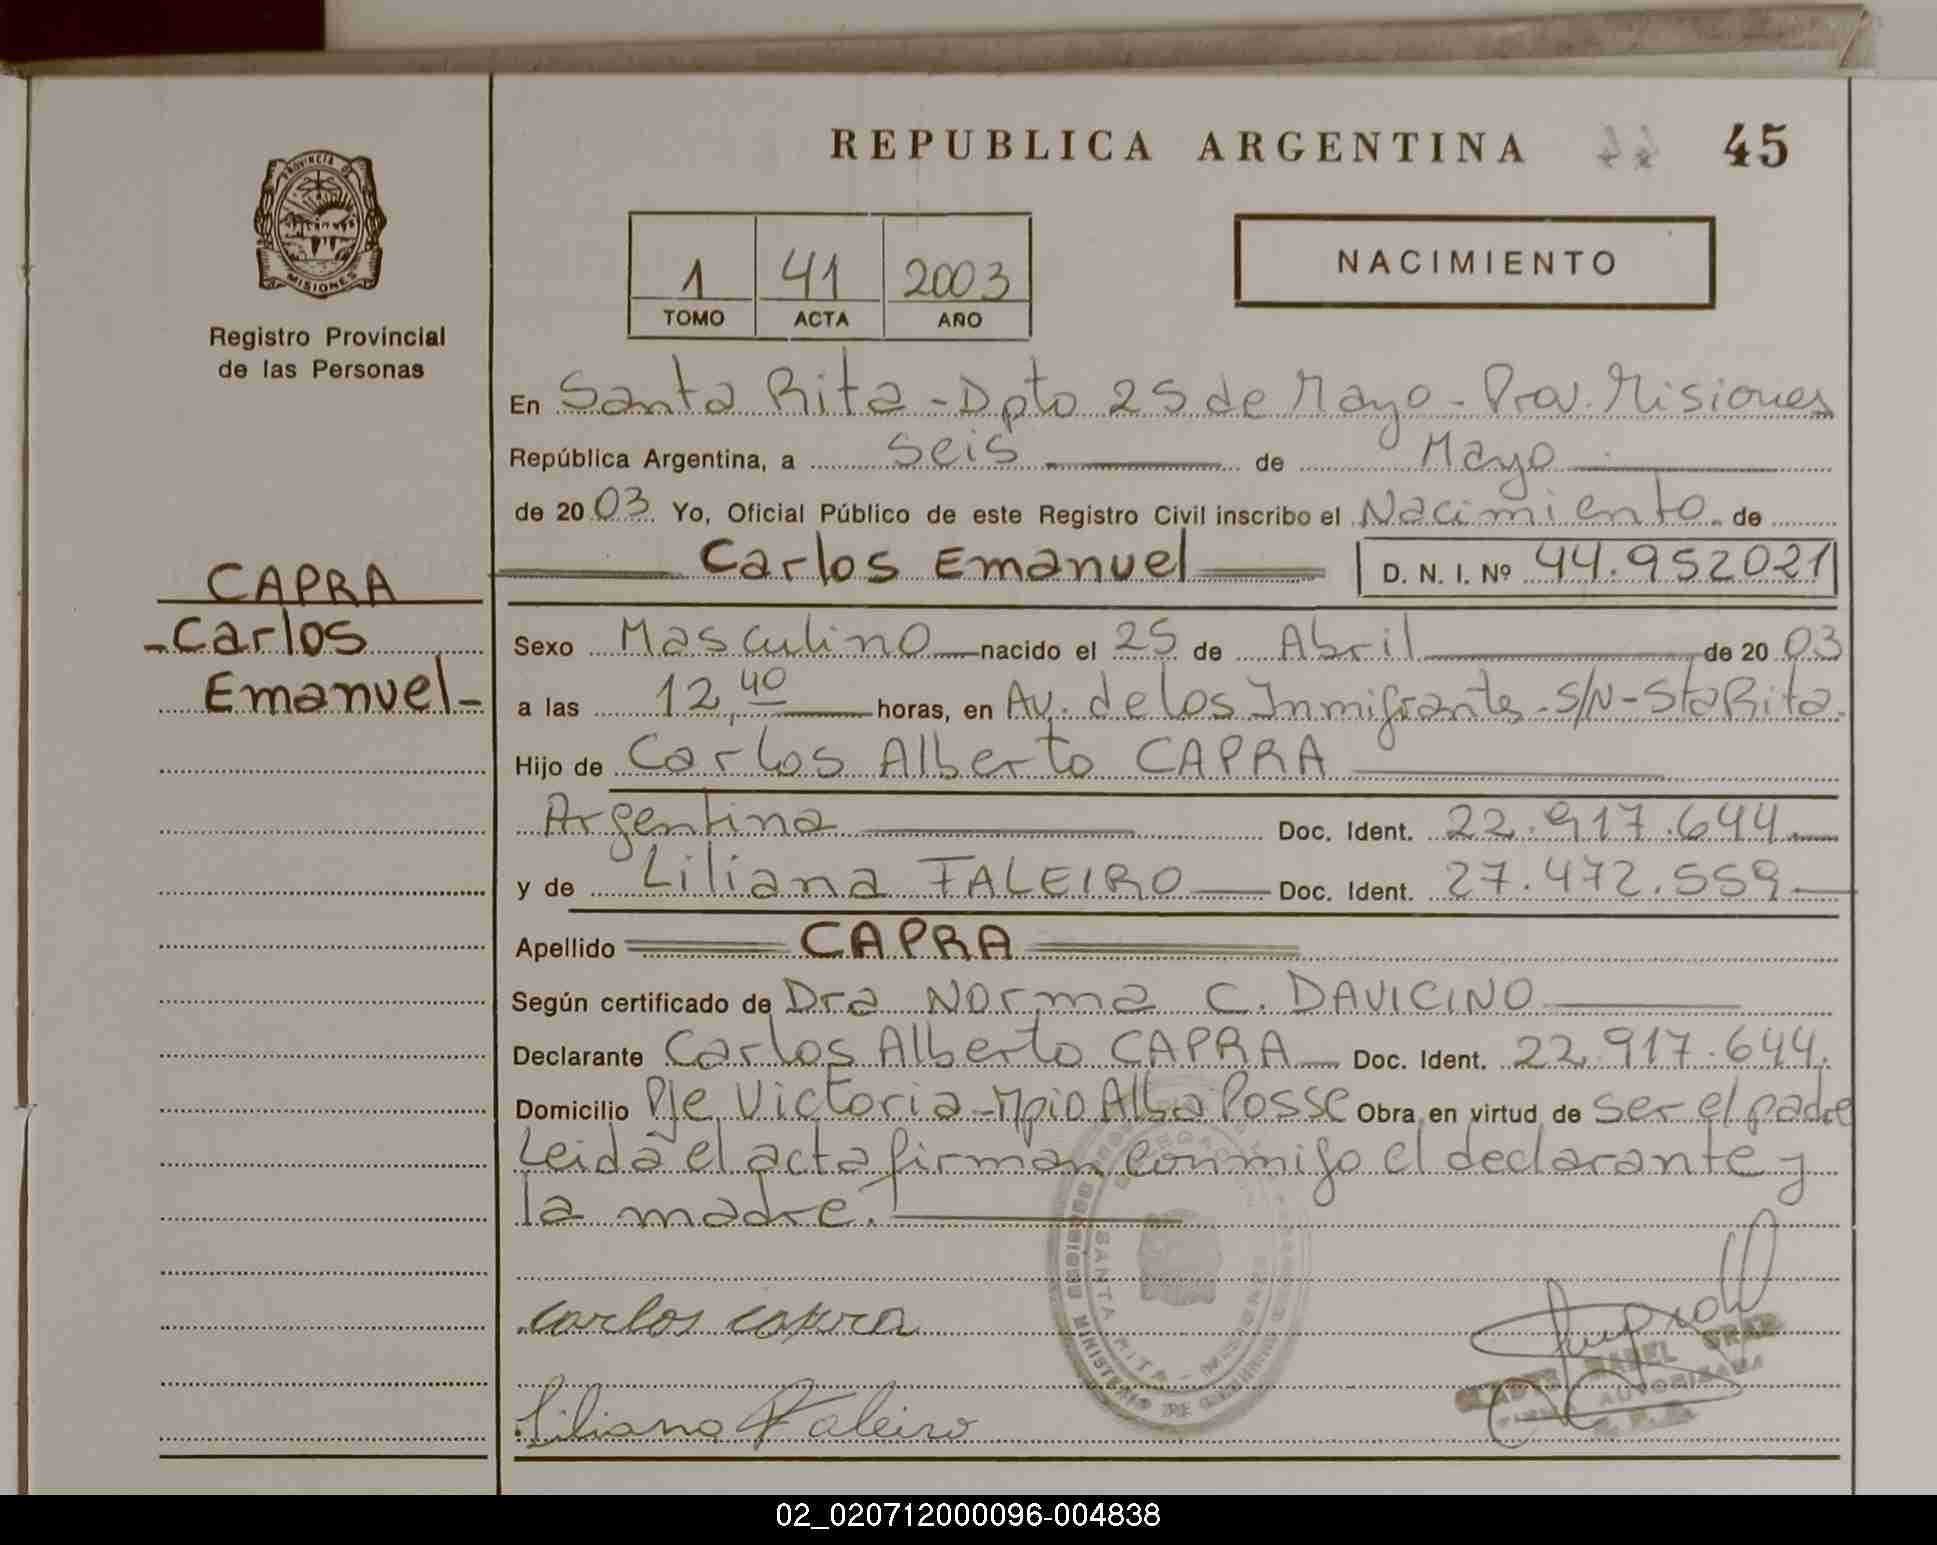 REPUBLICA ARGENTINA 45
PROVINCIA DE
MISIONES
Registro Provincial
de las Personas
NACIMIENTO
1 41 2003
TOMO ACTA AÑO
En Santa Rita - Dpto 25 de Mayo - Prov. Misiones
República Argentina, a seis de Mayo
de 2003 Yo, Oficial Público de este Registro Civil inscribo el Nacimiento de
Carlos Emanuel D. N. I. Nº 44.952021
CAPRA
- Carlos
Emanuel -
Sexo Masculino nacido el 25 de Abril de 2003
a las 12,40 horas, en Av. de los Inmigrantes - S/N - Sta Rita.
Hijo de Carlos Alberto CAPRA
Argentina Doc. Ident. 22.917.644
y de Liliana FALEIRO Doc. Ident. 27.472.559
Apellido CAPRA
Según certificado de Dra Norma C. DAVICINO
Declarante Carlos Alberto CAPRA Doc. Ident. 22.917.644.
Domicilio Pje Victoria - Mpio Alba Posse Obra en virtud de ser el padre
Leida el acta firman conmigo el declarante y
la madre.
SANTA RITA - MISIONES
MINISTERIO DE GOBIERNO
carlos capra
Liliana Faleiro
GLADYS MABEL
FIRMA AUTORIZADA
02_020712000096-004838